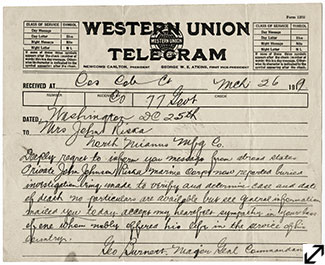 Form 1201
CLASS OF SERVICE SYMBOL
Day Message
Day Letter Blue
Night Message Nite
Night Letter N L
WESTERN UNION
WESTERN UNION
TELEGRAM
NEWCOMB CARLTON, PRESIDENT GEORGE W. E. ATKINS, FIRST VICE-PRESIDENT
CLASS OF SERVICE SYMBOL
Day Message
Day Letter Blue
Night Message Nite
Night Letter N L
RECEIVED AT Cos Cob Ct Mch 26 1919
77 Govt
DATED Washington DC 25th
TO Mrs John
North Mianus Mfg Co.
Deeply regret to inform you message from states
Private John Marine Corps now reported buried
investigation being made to verify and determine case and date
of death no particulars are available but see general information
mailed you today accept my heartfelt sympathy in your loss
of one whom nobly offered his life in the service of his
country.
Geo Barnett Major Genl Commandant